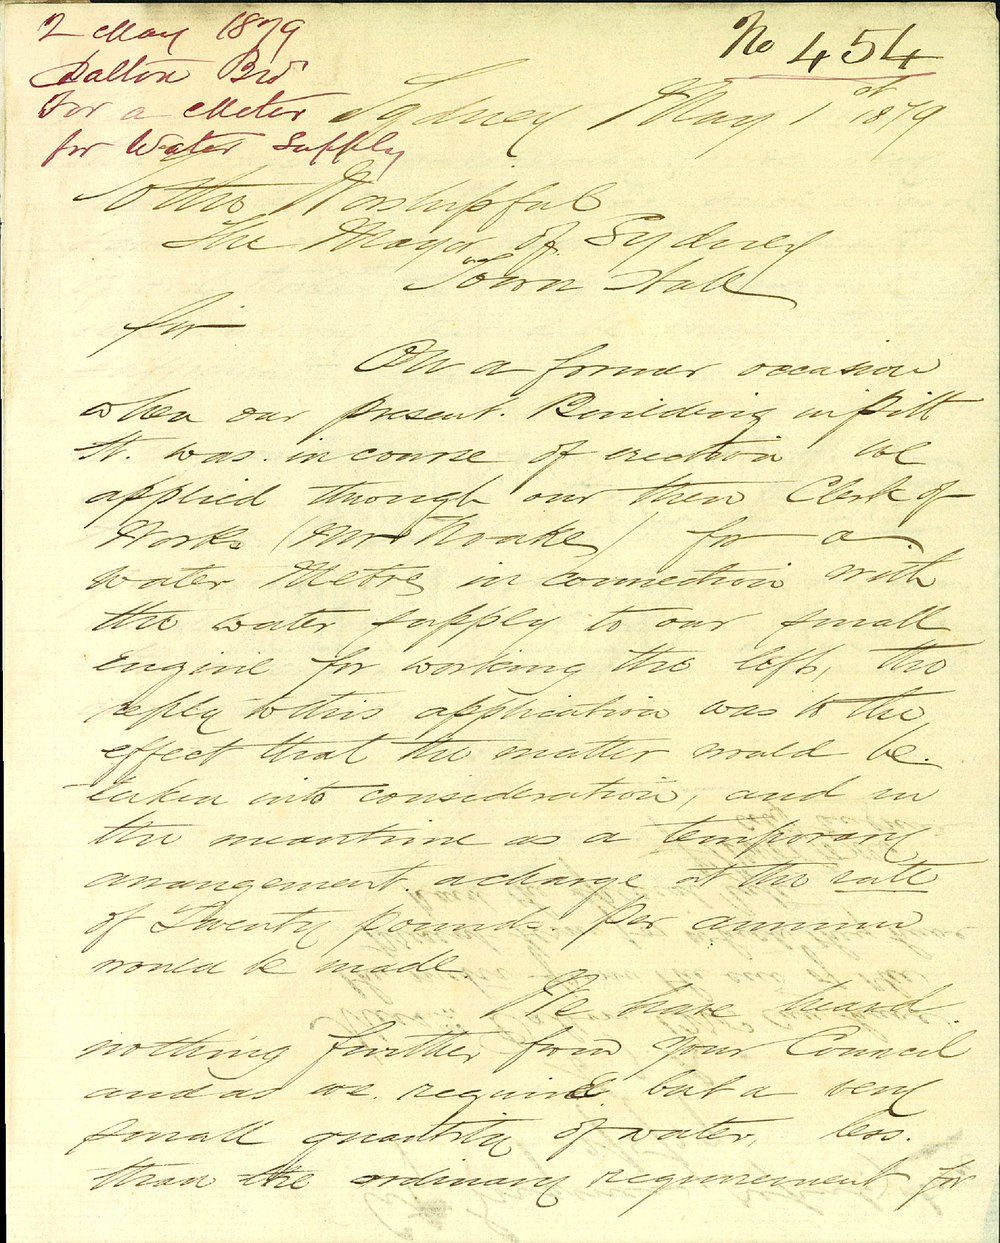 2 May 1879
Dalton Bros
For a Meter
for Water Supply
No 454
Sydney May 1st 1879
To the Worshipful
The Mayor of Sydney
Town Hall
Sir
On a former occasion
when our present Building in Pitt
St. was in course of erection we
applied through our then Clerk of
Works (Mr Noake) for a
water Metre in connection with
the water supply to our small
engine for working the lift, the
reply to this application was to the
effect that the matter would be
taken into consideration, and in
the meantime as a temporary
arrangement a charge at the rate
of Twenty pounds per annum
would be made
We have heard
nothing further from your Council
and as we require but a very
small quantity of water, less
than the ordinary requirement for